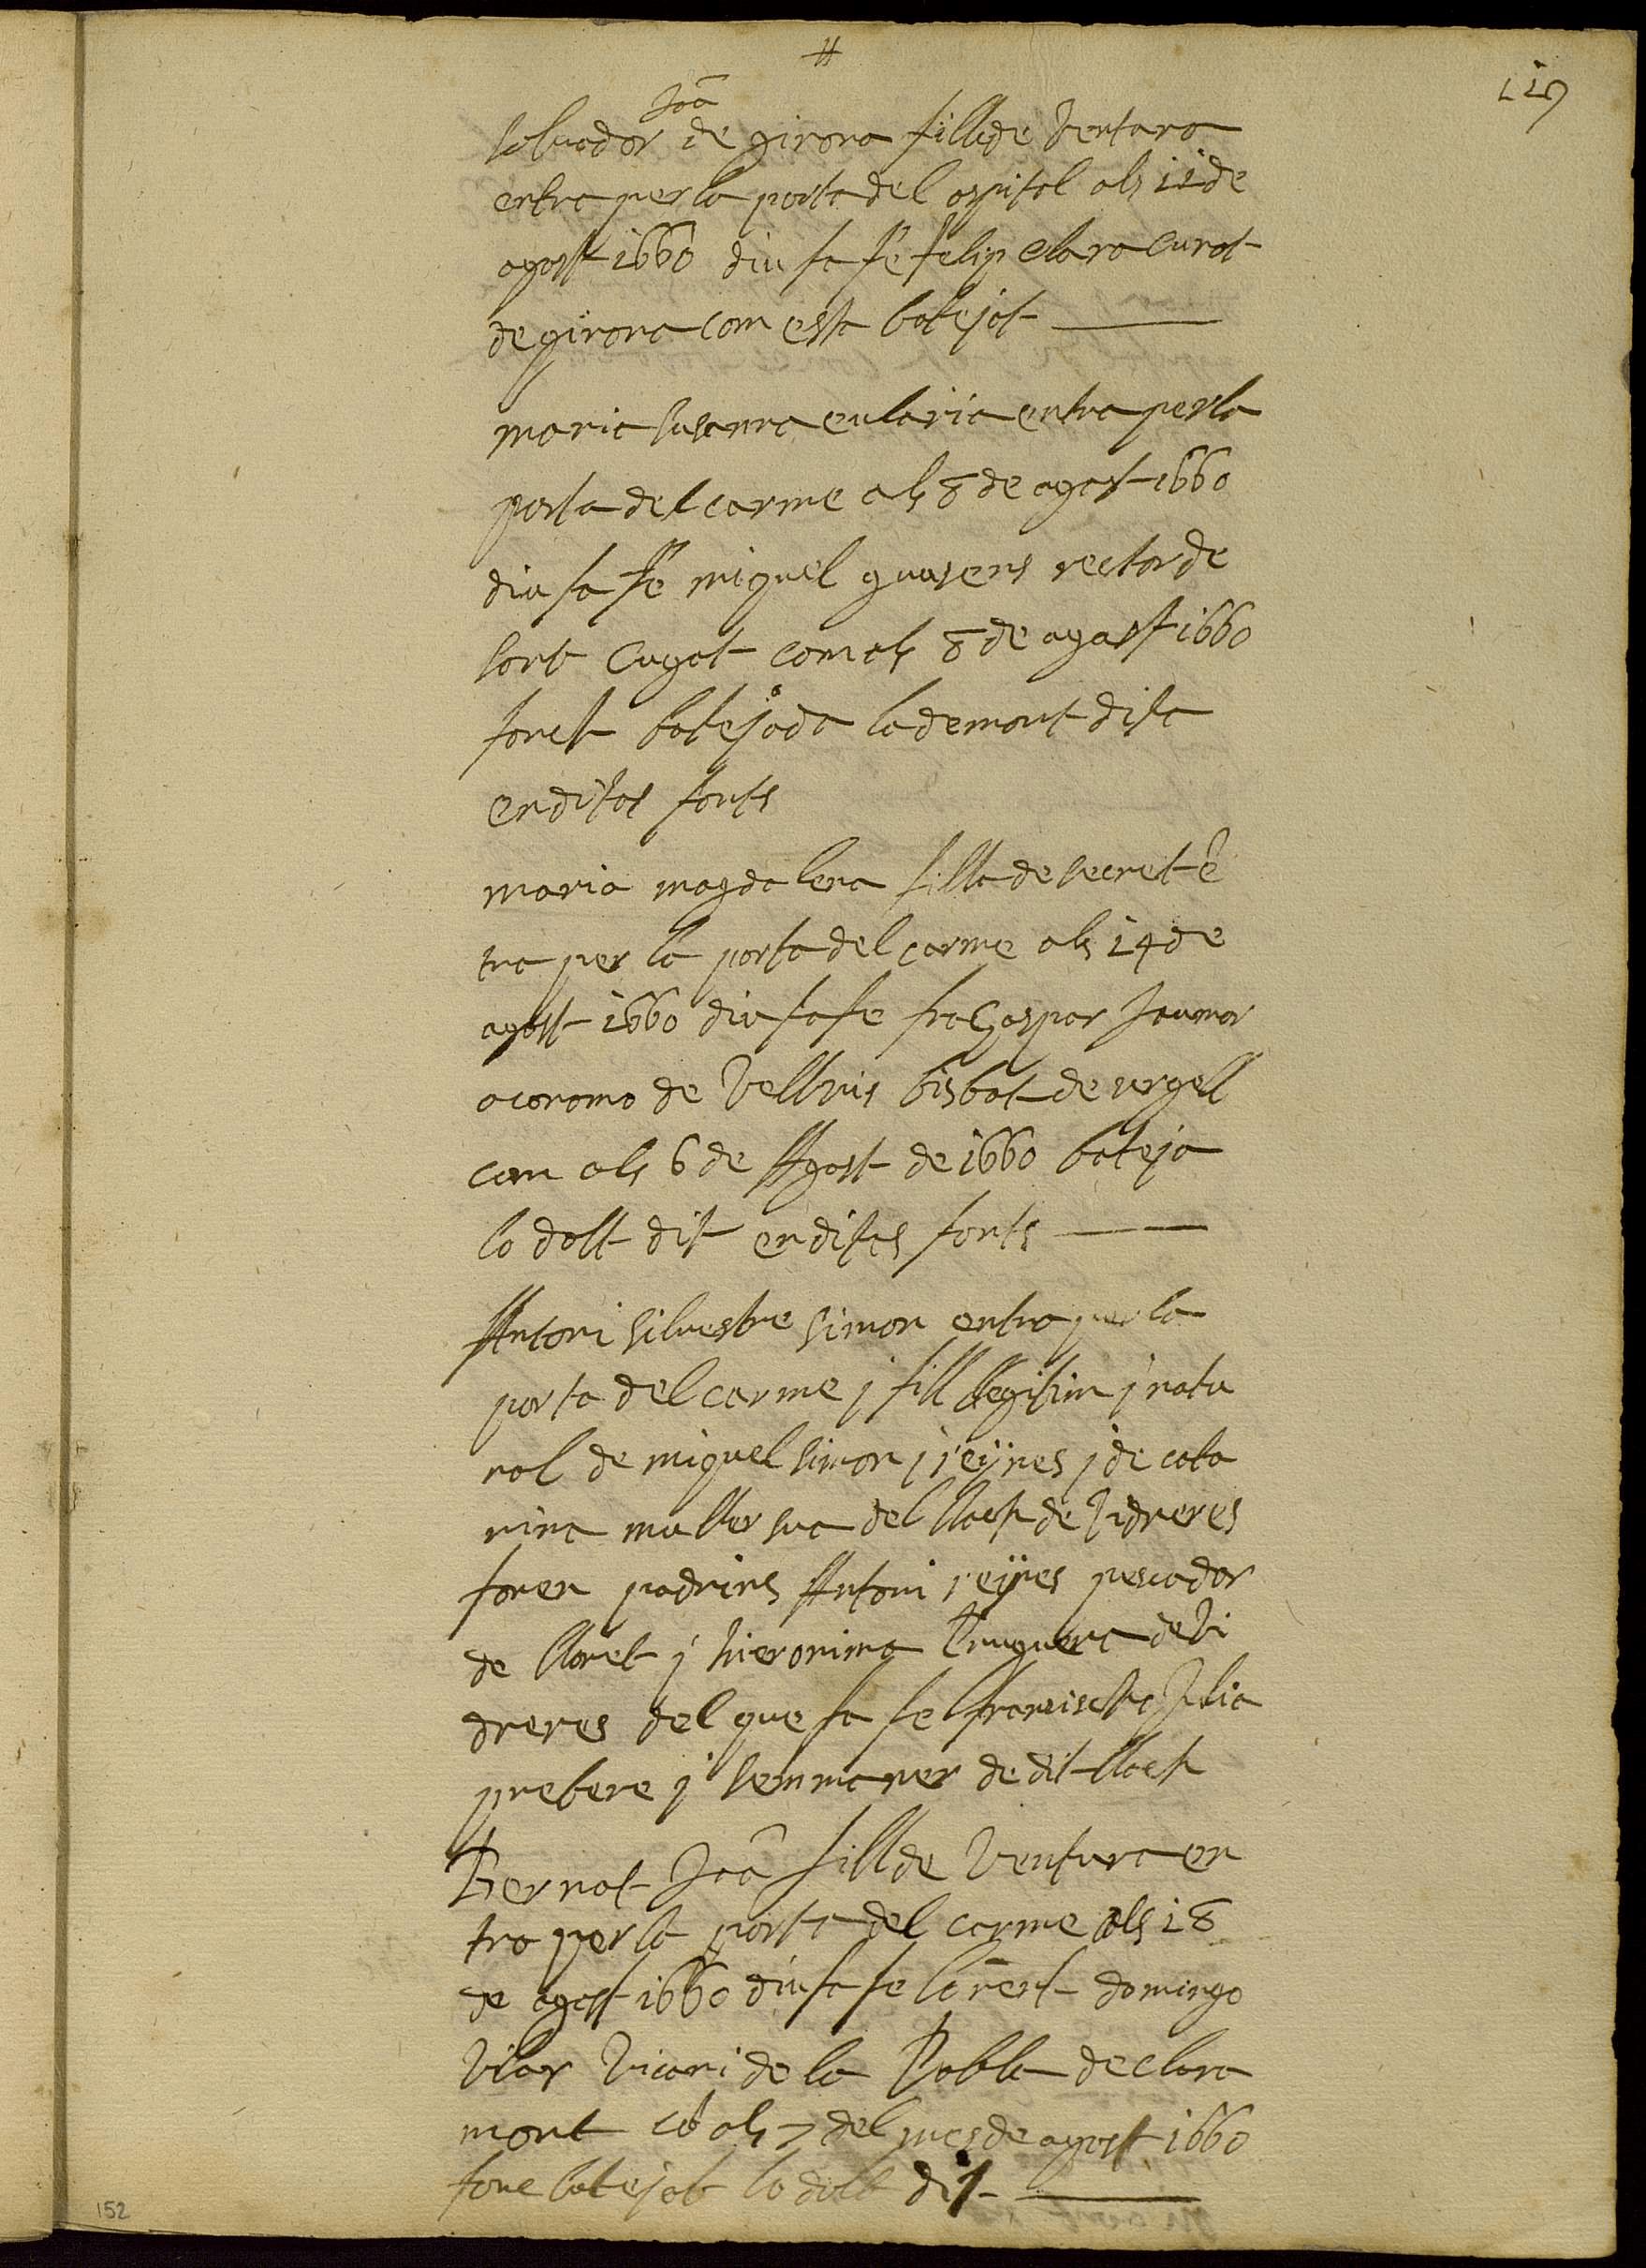 #
119
Joā
saluador de girona fill de Ventura
entra per la porta del ospital als 11 de
agost 1660 diu sa fe felip clara curat
de girona com esta batejat
maria susanna eularia entra per la
porta del carme als 8 de agost 1660
diu sa fe miquel guasens rector de
sant cugat com als 8 de agost 1660
fonch batejada lademont dita
en ditas fonts
maria magdalena filla de secret ē
tra per la porta del carme als 14 de
agost 1660 diu sa fe fra Gaspar Jaumar
aconomo de Vellvis bisbat de urgell
com als 6 de Agost de 1660 bateja
lo dalt dit en dites fonts
Antoni siluestre simon entra per la
porta del carme j fill llegitim j natu
ral de miquel simon j reÿnes j de cata
rina muller sua del lloch de Vidreres
foren padrins Antoni reÿnes pescador
de lloret j hieronima bruguera de Vi
dreres del que fa fe francisch Julia
prebere j semmaner de dit lloch
Bernat Joā fill de Ventura en
tra per la porta del carme als 18
de agost 1660 diu sa fe lorens domingo
Vilar Vicari de la Pobla de clara
mont cō als 7 del mes de agost 1660
fonc batejat lo dalt dit
152